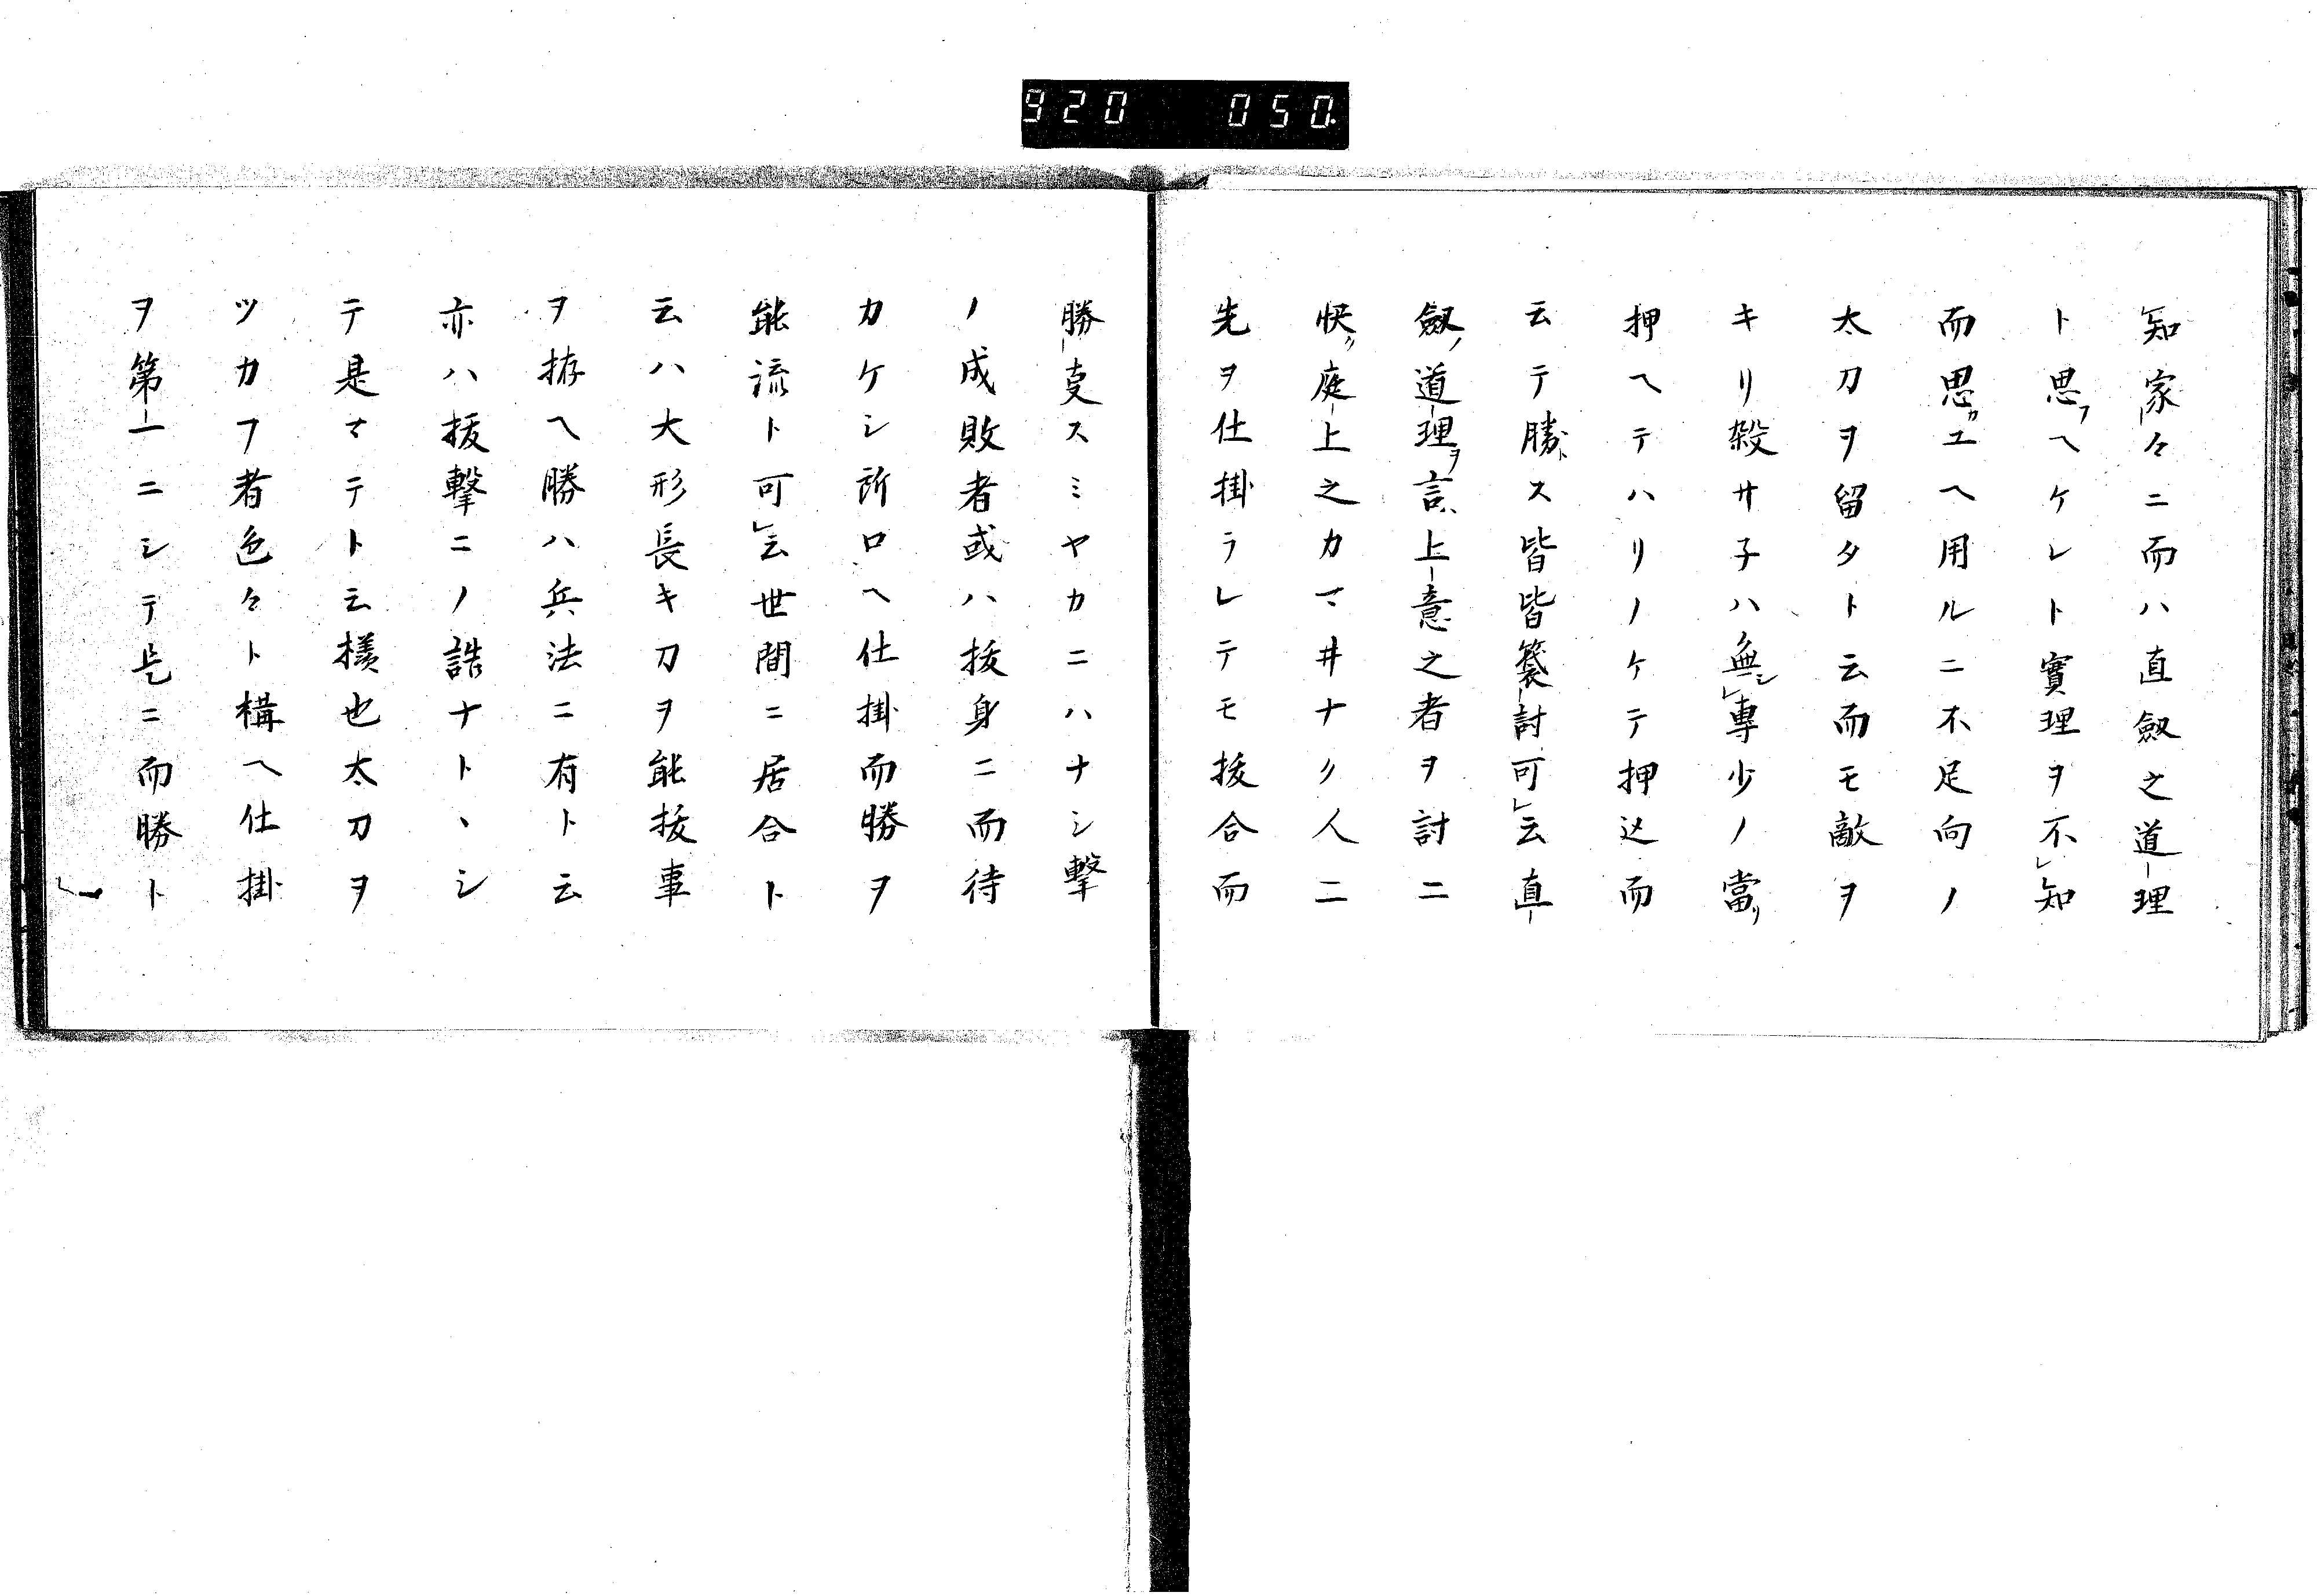 920 050.
知家々ニ而ハ直劔之道理
ト思フヘケレト實理ヲ不レ知
而思カユヘ用ルニ不足向ノ
太刀ヲ留タト云而モ敵ヲ
キリ殺サ子ハ無シレ專少ノ當リ
押ヘテハリノケテ押込而
云テ勝トス皆皆簔討可レ云直
劔ノ道理ヲ言ハ上意之者ヲ討ニ
快ク庭上之カマ井ナク人ニ
先ヲ仕掛ラレテモ拔合而
勝叓スミヤカニハナシ撃
ノ成敗者或ハ拔身ニ而待
カケシ所ロヘ仕掛而勝ヲ
能流ト可レ云世間ニ居合ト
云ハ大形長キ刀ヲ能拔事
ヲ拵ヘ勝ハ兵法ニ有ト云
亦ハ拔撃ニノ誥ナトヽシ
テ是マテテト云樣也太刀ヲ
ツカフ者色々ト構ヘ仕掛
ヲ第一ニシテ是ニ而勝ト